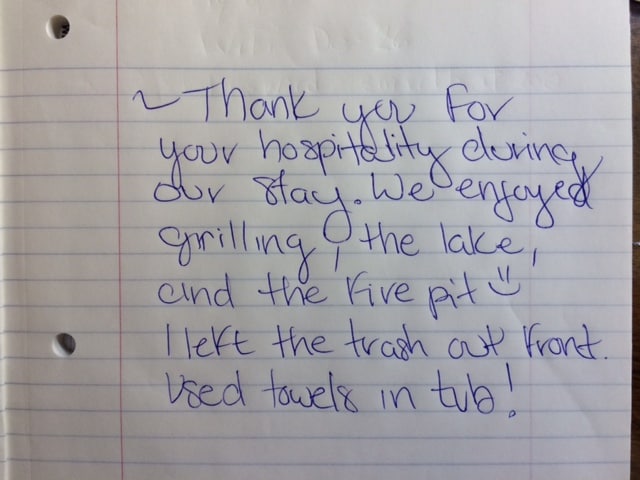 ~ Thank you for
your hospitality during
our stay. We enjoyed
grilling, the lake,
and the fire pit :)
I left the trash out front.
Used towels in tub!